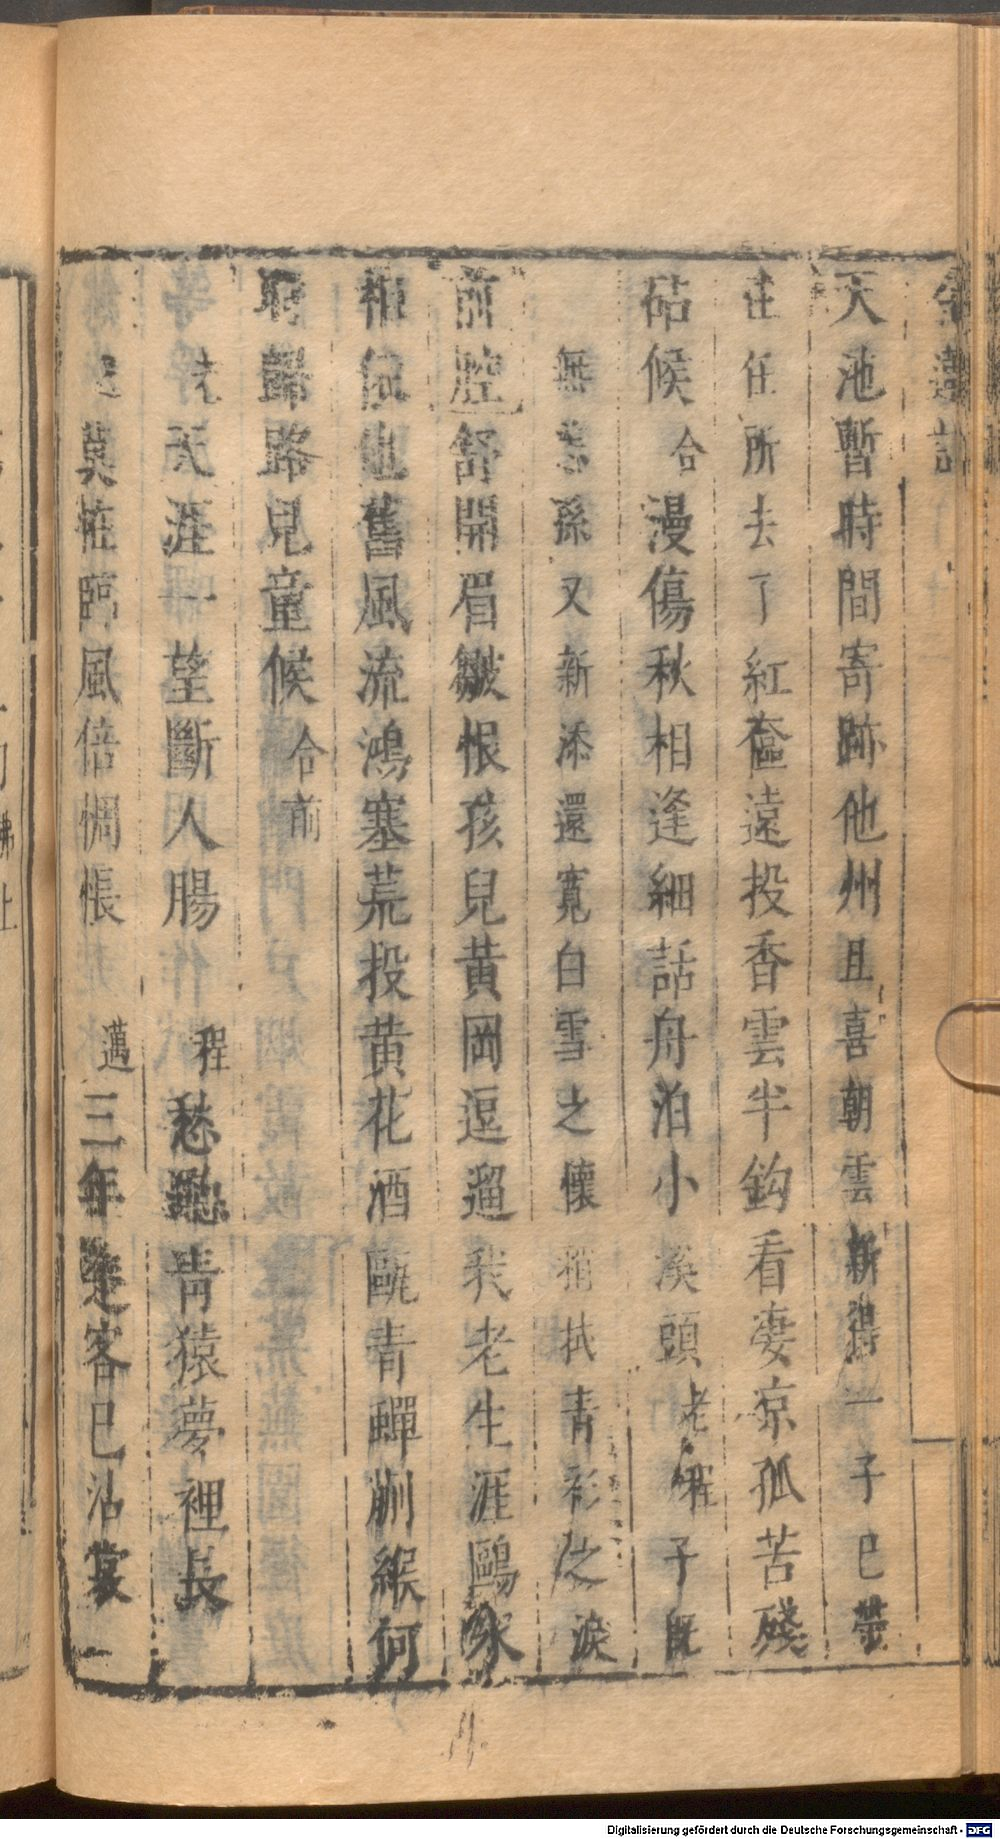 金蓮記
天池暫時間寄跡他州且喜朝雲新得一子已帶
往任所去了紅奩遠投香雲半鈎看凄凉孤苦殘
砧候合漫傷秋相逢細話舟泊小溪頭老程子既
無孫又新添還寬白雪之懷稍拭青衫之淚
前腔舒開眉皺恨孩兒黃岡逗遛我老生涯鷗
相依也舊風流鴻塞荒投黃花酒甌青蟬緱何
歸路兒童候合前
天涯一望斷人腸程愁聽青猿夢裡長
莫恠臨風倍惆悵邁三年楚客已沾裳
Digitalisierung gefördert durch die Deutsche Forschungsgemeinschaft - DFG